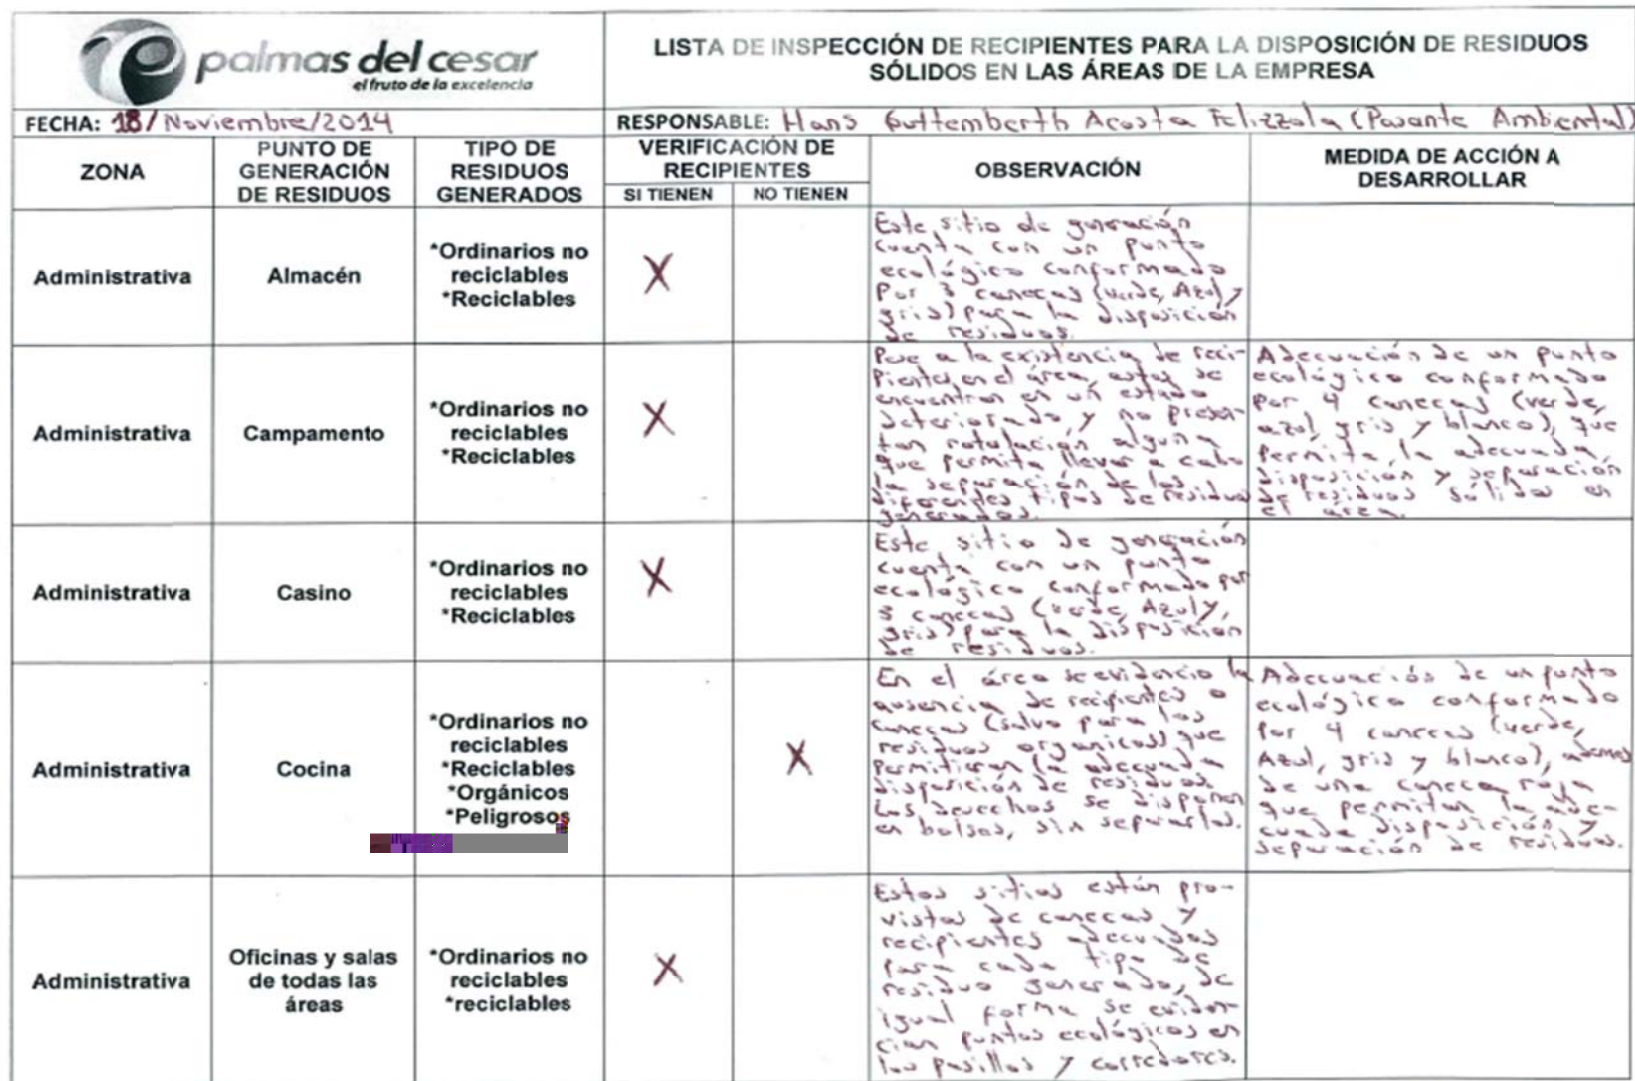 palmas del cesar
el fruto de la excelencia
LISTA DE INSPECCIÓN DE RECIPIENTES PARA LA DISPOSICIÓN DE RESIDUOS
SÓLIDOS EN LAS ÁREAS DE LA EMPRESA
FECHA: 18/Noviembre/2014
RESPONSABLE: Hans Guttemberth Acosta Felizzola (Pasante Ambiental)
ZONA
PUNTO DE
GENERACIÓN
DE RESIDUOS
TIPO DE
RESIDUOS
GENERADOS
VERIFICACIÓN DE
RECIPIENTES
SI TIENEN
NO TIENEN
OBSERVACIÓN
MEDIDA DE ACCIÓN A
DESARROLLAR
Administrativa
Almacén
*Ordinarios no
reciclables
*Reciclables
X
Este sitio de generación
cuenta con un punto
ecológico conformado
Por 3 canecas (verde, Azul y
gris) para la disposición
de residuos.
Administrativa
Campamento
*Ordinarios no
reciclables
*Reciclables
X
Pese a la existencia de reci-
pientes en el área, estos se
encuentran en un estado
deteriorado y no presen-
tan rotulación alguna
que permita llevar a cabo
la separación de los
diferentes tipos de residuos
generados.
Adecuación de un punto
ecológico conformado
Por 4 canecas (verde,
azul, gris y blanco), que
permita la adecuada
disposición y separación
de residuos sólidos en
el área.
Administrativa
Casino
*Ordinarios no
reciclables
*Reciclables
X
Este sitio de generación
cuenta con un punto
ecológico conformado por
3 canecas (verde, Azul y
gris) para la disposición
de residuos.
Administrativa
Cocina
*Ordinarios no
reciclables
*Reciclables
*Orgánicos
*Peligrosos
X
En el área se evidencio la
ausencia de recipientes o
canecas (salvo para los
residuos organicos) que
Permitieran la adecuada
disposición de residuos.
Los desechos se disponen
en bolsas, sin separarlos.
Adecuación de un punto
ecológico conformado
Por 4 canecas (verde,
Azul, gris y blanco), ademas
de una caneca roja
que permitan la ade-
cuada disposición y
separación de residuos.
Administrativa
Oficinas y salas
de todas las
áreas
*Ordinarios no
reciclables
*reciclables
X
Estos sitios están pro-
vistos de canecas y
recipientes adecuados
para cada tipo de
residuo generado, de
igual forma se eviden-
cian puntos ecológicos en
los pasillos y corredores.